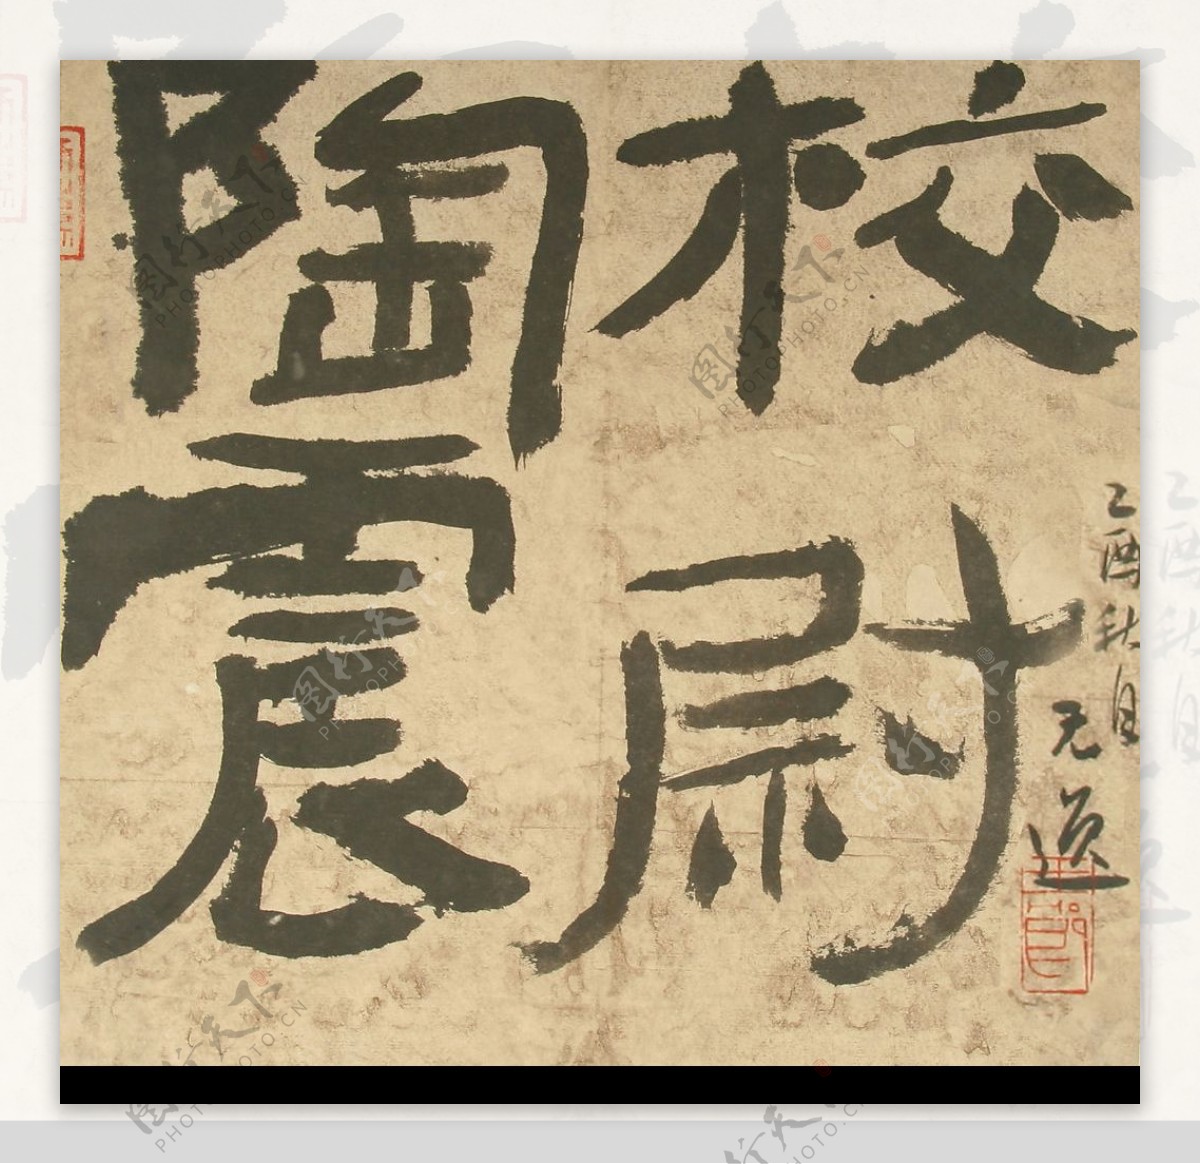 校尉
陶震
乙酉秋月
无道
图行天下
PHOTOPHOTO.CN